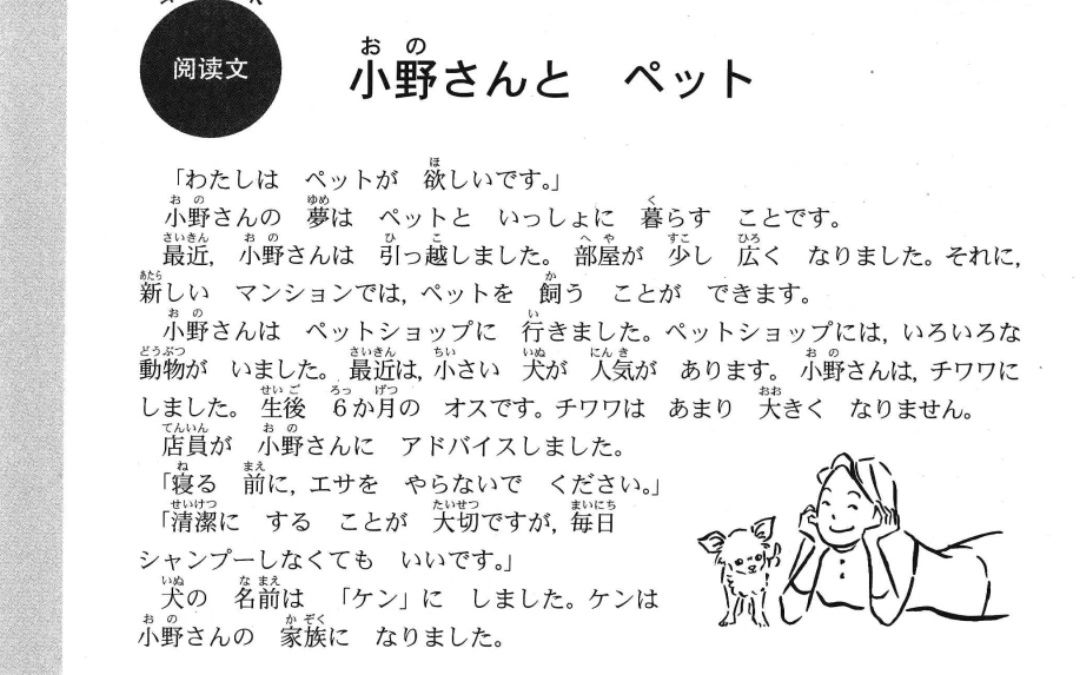 阅读文
小野さんと　ペット
「わたしは　ペットが　欲しいです。」
小野さんの　夢は　ペットと　いっしょに　暮らす　ことです。
最近,　小野さんは　引っ越しました。　部屋が　少し　広く　なりました。それに,
新しい　マンションでは, ペットを　飼う　ことが　できます。
小野さんは　ペットショップに　行きました。ペットショップには, いろいろな
動物が　いました。　最近は, 小さい　犬が　人気が　あります。　小野さんは, チワワに
しました。　生後　6か月の　オスです。チワワは　あまり　大きく　なりません。
店員が　小野さんに　アドバイスしました。
「寝る　前に, エサを　やらないで　ください。」
「清潔に　する　ことが　大切ですが, 毎日
シャンプーしなくても　いいです。」
犬の　名前は　「ケン」に　しました。ケンは
小野さんの　家族に　なりました。